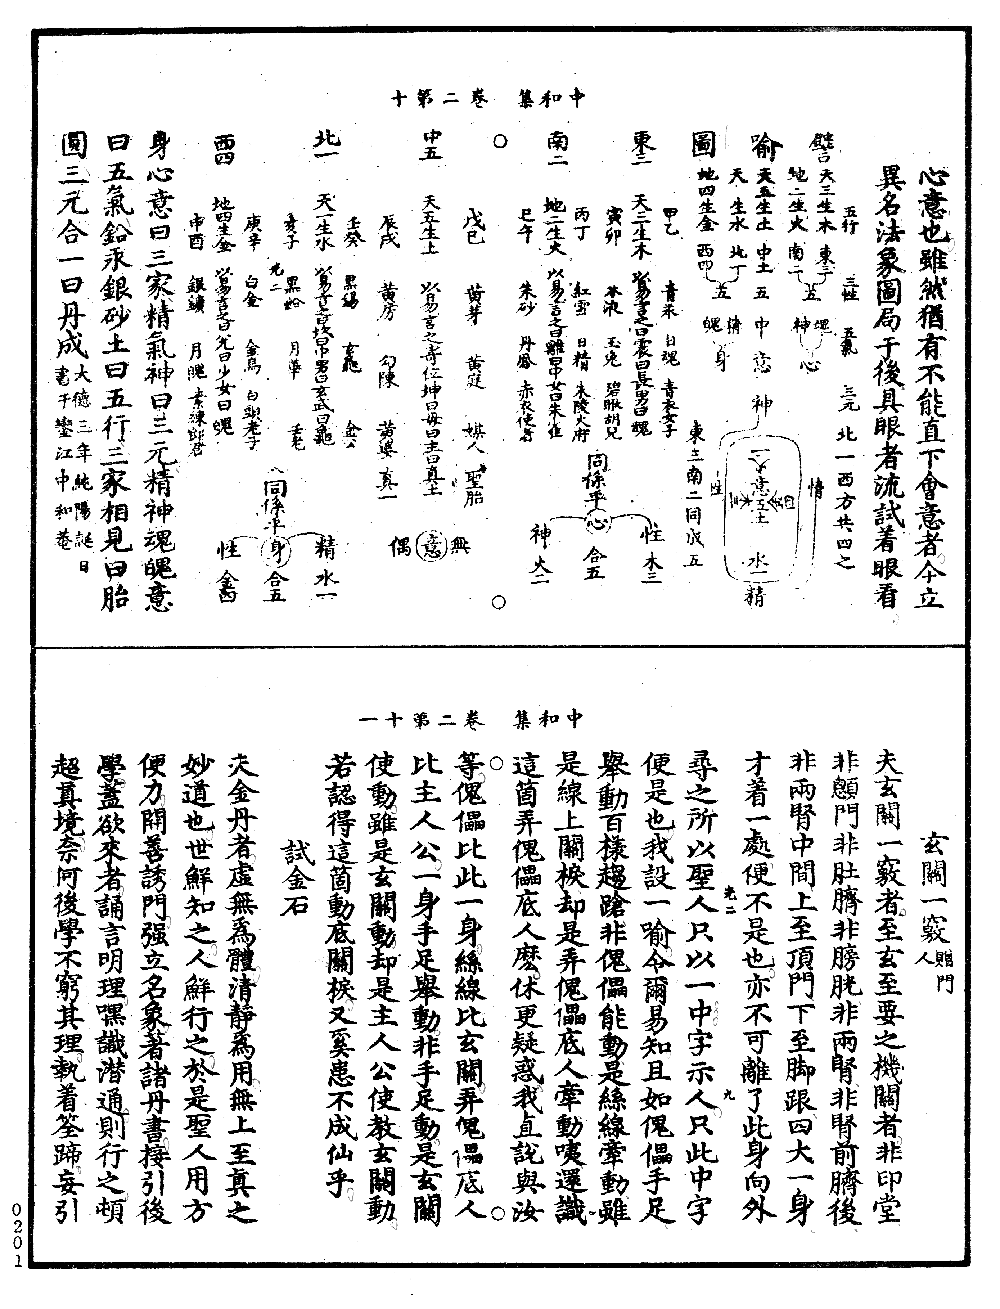 中和集　卷二第十
心意也雖然猶有不能直下會意者今立
異名法象圖局于後具眼者流試着眼看
五行　三性　五氣　三元　北一西方共四之
譬　天三生木　東三　魂
地二生火　南二　神　心　情
喻　天五生土　中土　五　中　意　神
天一生水　北一　精　身
圖　地四生金　西四　魄　東三南二同成五
意五土　水一　精　性
東三　天三生木　以易言之曰震曰長男曰魂
甲乙　青龍　日魂　青衣女子
寅卯　木液　玉兔　碧眼胡兒
同係乎心　合五　性　木三　神　火二
南二　地二生火　以易言之曰離
丙丁　紅雪　日精　朱陵火府
巳午　朱砂　丹鳳　赤衣使者
中五　天五生土　以易言之寄位坤曰母曰主曰真土
戊己　黃芽　黃庭　媒人　聖胎
辰戌　黃房　勾陳　黃婆　真一
無　意　偶
北一　天一生水
壬癸　黑錫　玄龜　金公
亥子　黑鉛　月華　壬老
同係乎身　合五　精　水一　性　金四
西四　地四生金　以易言之曰兌曰少女曰魄
庚辛　白金　金烏　白頭老子
申酉　銀鑛　月魄　素練郎君
身心意曰三家精氣神曰三元精神魂魄意
曰五氣鉛汞銀砂土曰五行三家相見曰胎
圓三元合一曰丹成大德三年純陽誕日
書于鑾江中和菴
中和集　卷二第十一
玄關一竅贈門人
夫玄關一竅者至玄至要之機關者非印堂
非顖門非肚臍非膀胱非兩腎非腎前臍後
非兩腎中間上至頂門下至脚跟四大一身
才着一處便不是也亦不可離了此身向外
尋之所以聖人只以一中字示人只此中字
便是也我設一喻令爾易知且如傀儡手足
舉動百樣趨蹌非傀儡能動是絲線牽動雖
是線上關捩却是弄傀儡底人牽動咦還識
這箇弄傀儡底人麽休更疑惑我直說與汝
等傀儡比此一身絲線比玄關弄傀儡底人
比主人公一身手足舉動非手足動是玄關
使動雖是玄關動却是主人公使教玄關動
若認得這箇動底關捩又奚患不成仙乎
試金石
夫金丹者虛無爲體清靜爲用無上至真之
妙道也世鮮知之人鮮行之於是聖人用方
便力開善誘門强立名象著諸丹書接引後
學蓋欲來者誦言明理嘿識潛通則行之頓
超真境奈何後學不窮其理執着筌蹄妄引
0201